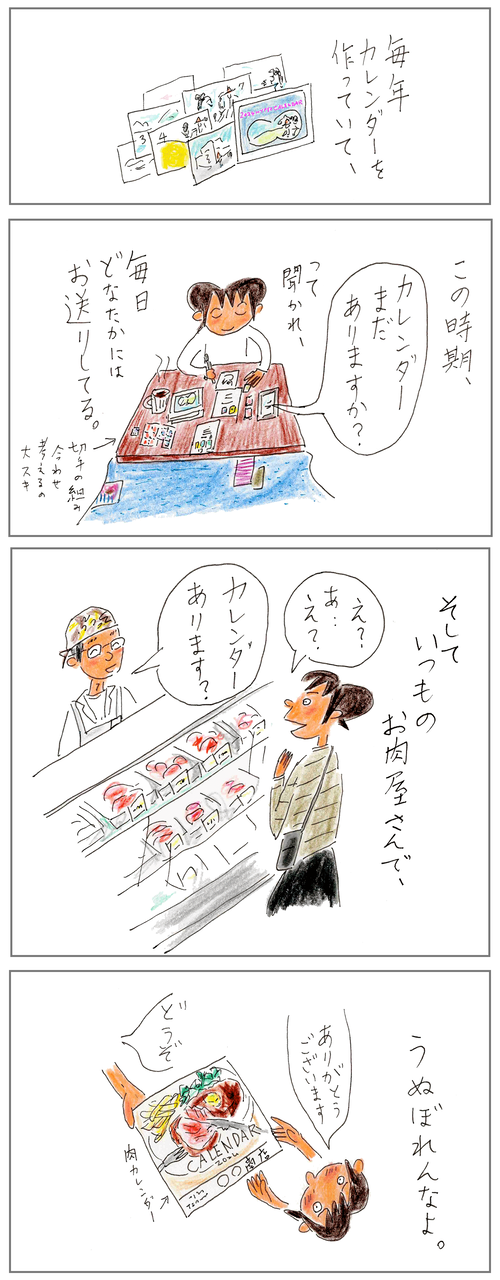 毎年
カレンダーを
作っていて、
CALENDAR
3
4
この時期、
カレンダー
まだ
ありますか?
って
聞かれ、
毎日
どなたかには
お送りしてる。
切手の組み
合わせ
考えるの
大スキ
そして
いつもの
お肉屋さんで、
え?
あ…
え?
カレンダー
あります?
うぬぼれんなよ。
ありがとう
ございます
どうぞ
CALENDAR
〇〇商店
肉カレンダー